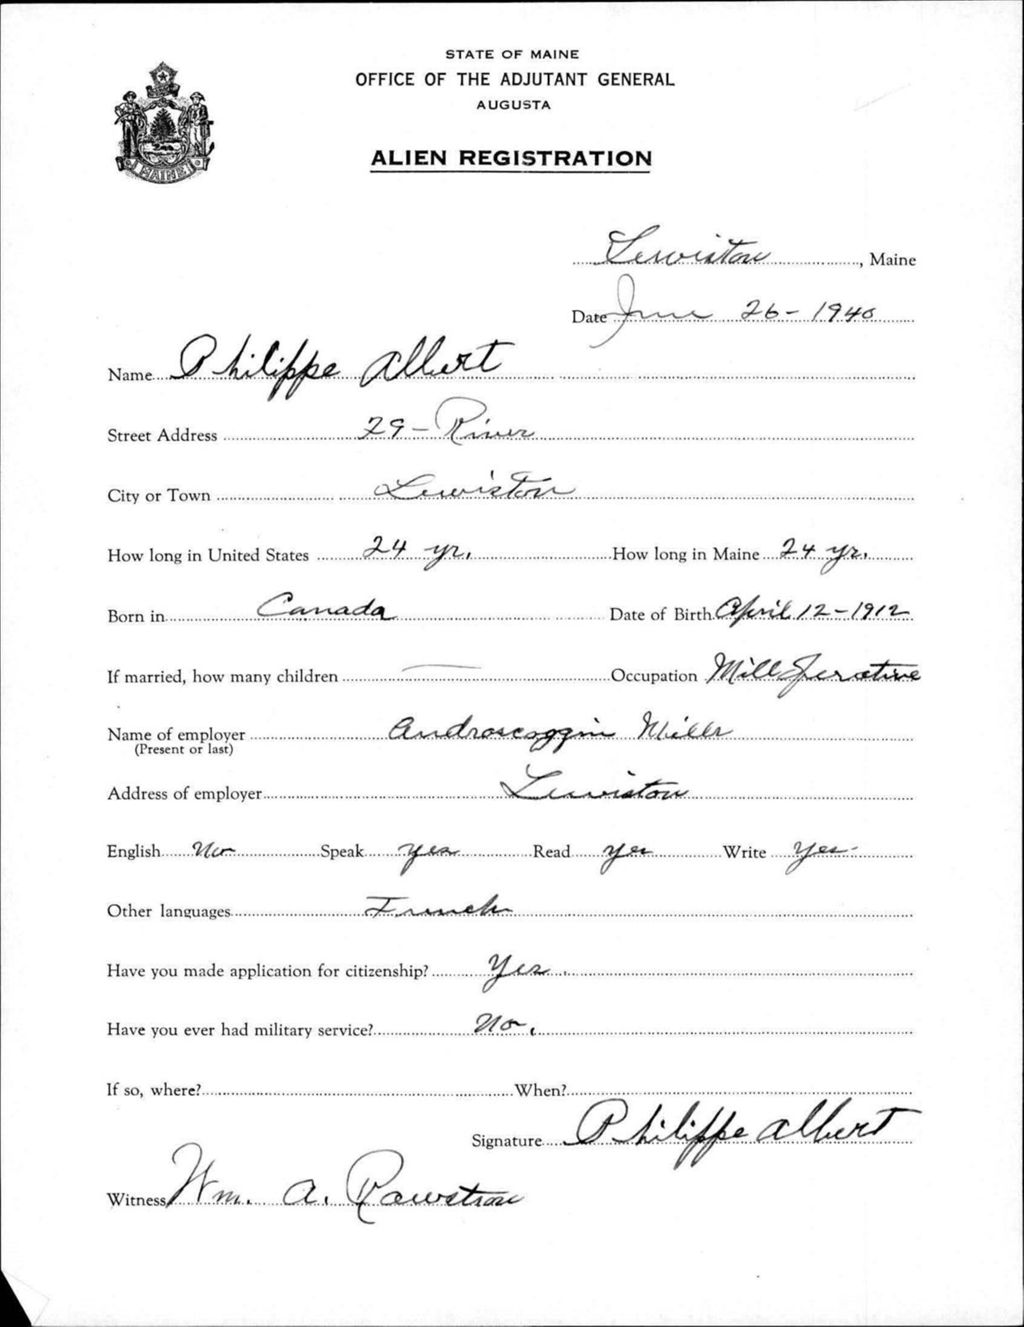 STATE OF MAINE
OFFICE OF THE ADJUTANT GENERAL
AUGUSTA
ALIEN REGISTRATION
MAINE
Lewiston, Maine
Date June 26 - 1940
Name Philippe Albert
Street Address 29 - River
City or Town Lewiston
How long in United States 24 yr. How long in Maine 24 yr.
Born in Canada Date of Birth April 12 - 1912
If married, how many children — Occupation Mill Operative
Name of employer Androscoggin Mills
(Present or last)
Address of employer Lewiston
English No Speak yes Read yes Write yes
Other languages French
Have you made application for citizenship? Yes
Have you ever had military service? No.
If so, where? When?
Signature Philippe Albert
Witness Wm. A. Rawstron